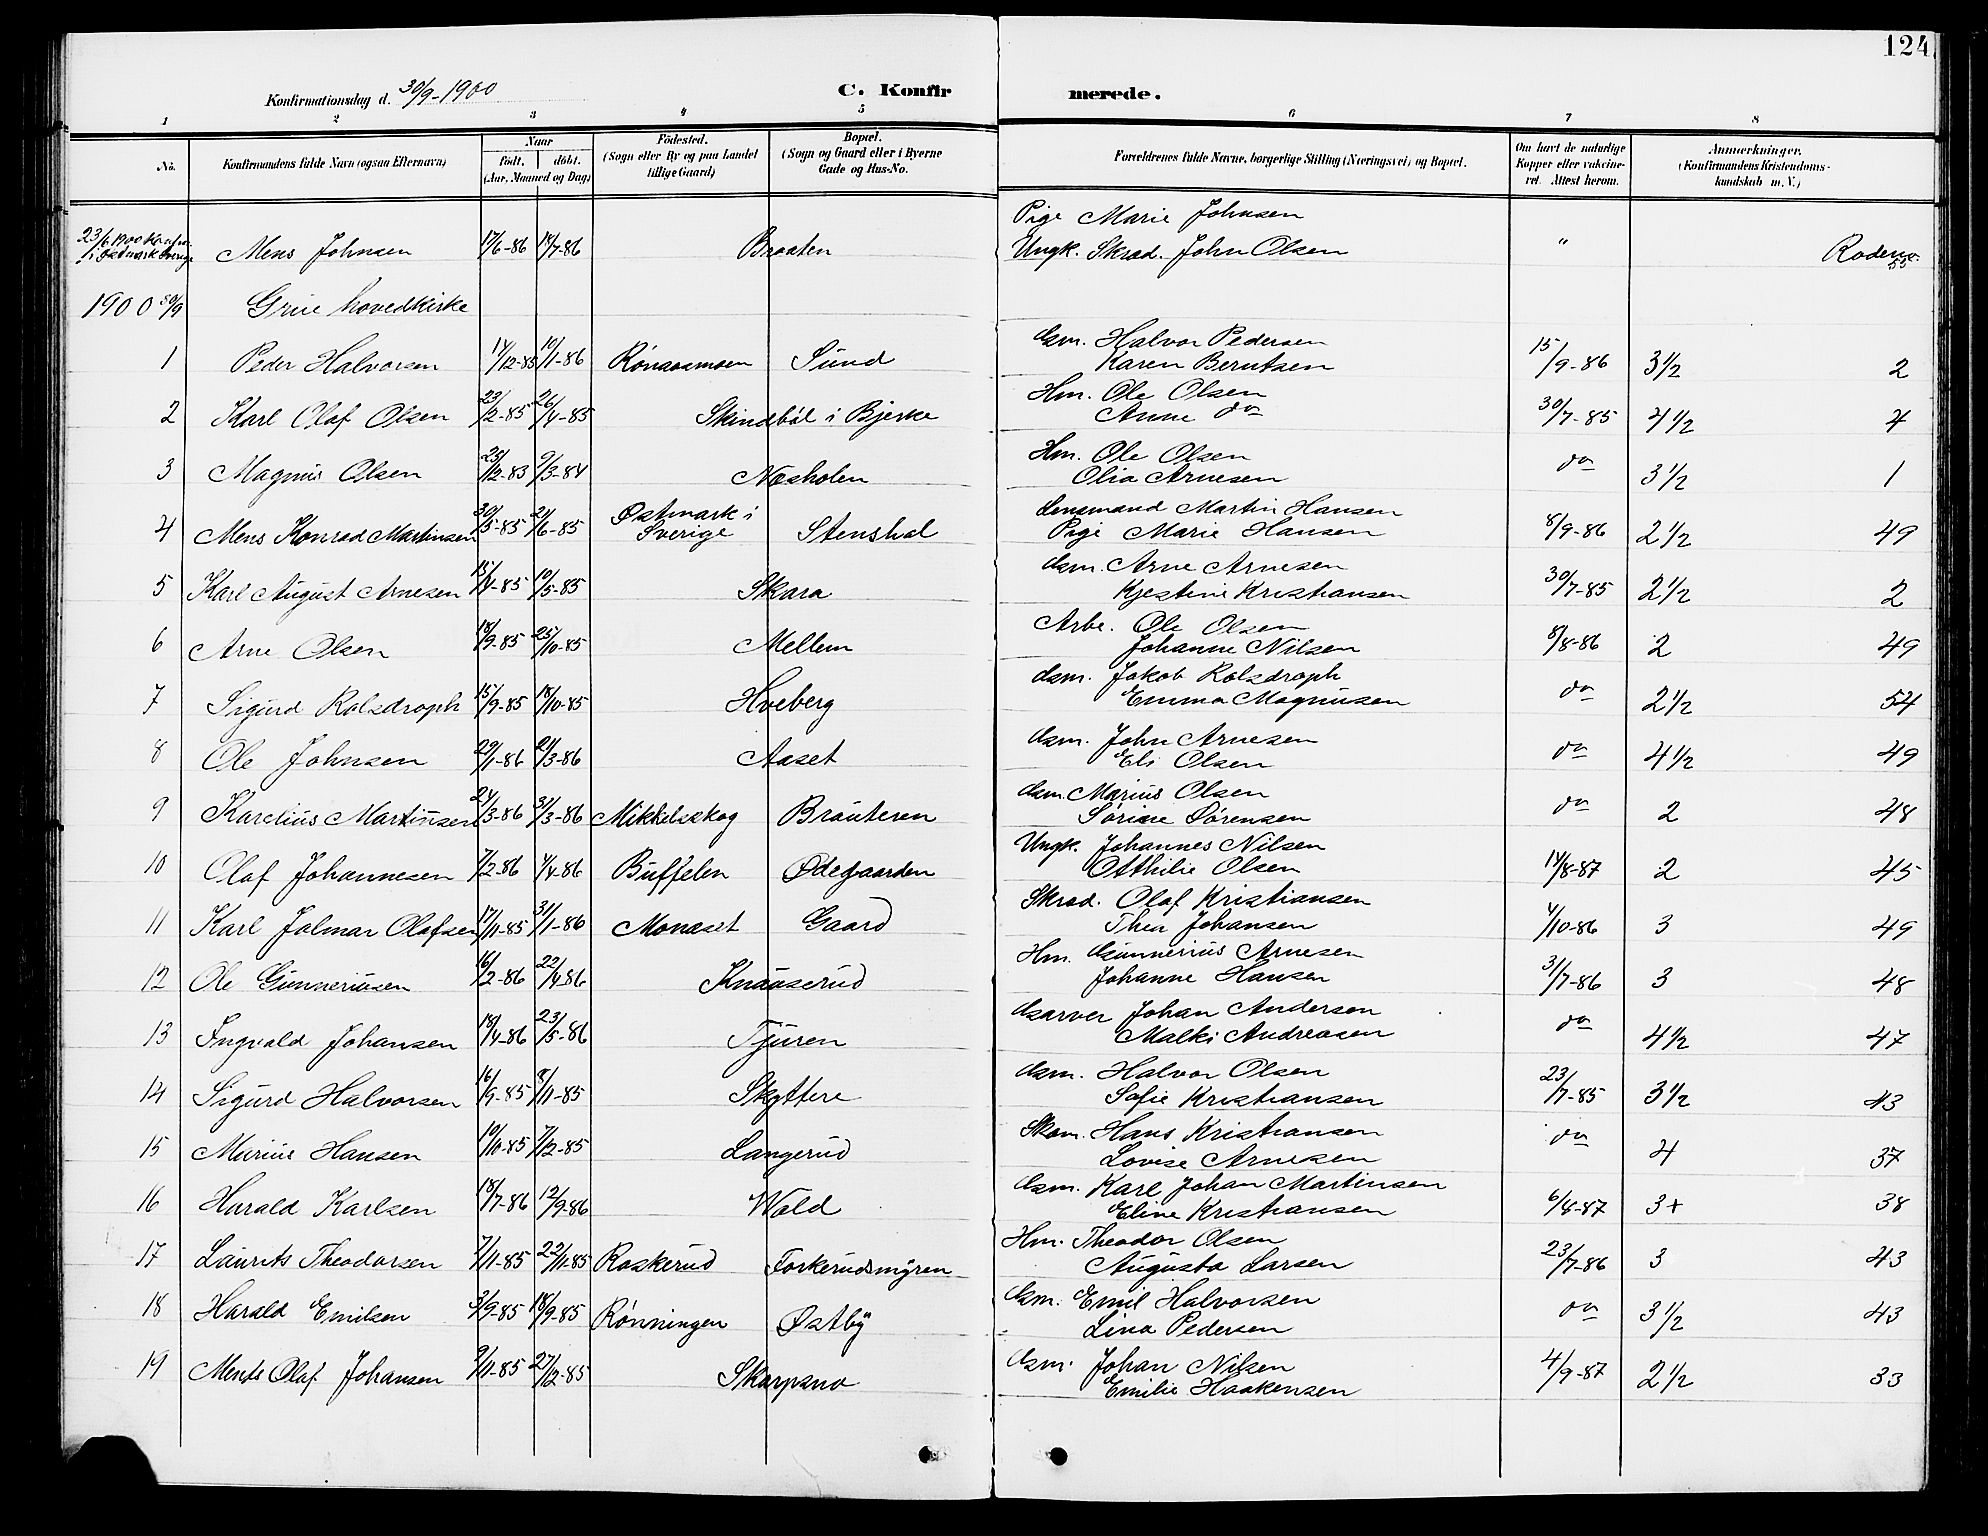 124
Konfirmationsdag d. 30/9-1900
C. Konfirmerede.
1 2 3 4 5 6 7 8
No. Konfirmandens fulde Navn (ogsaa Efternavn) Naar født, døbt. (Aar, Maaned og Dag) Fødested. (Sogn eller By og paa Landet tillige Gaard) Bopæl. (Sogn og Gaard eller i Byerne Gade og Hus-No. Forældrenes fulde Navne, borgerlige Stilling (Næringsvei) og Bopæl. Om havt de naturlige Kopper eller vakcineret. Attest herom. Anmerkninger. (Konfirmandens Kristendomskundskab m. V.)
Pige Marie Johnsen
23/6 1900 i Østmark Sverige Mens Johnsen 17/6-86 14/7-86 Braaten Ungk. Skræd. John Olsen " 55
1900 30/9 Grue hovedkirke
1 Peder Halvorsen 14/12-85 10/1-86 Rønaasmoen Sund Gsm. Halvor Pedersen
Karen Berntsen 15/9-86 3 1/2 2
2 Karl Olaf Olsen 23/2-85 26/4-85 Skindbøl i Bjerke Hm. Ole Olsen
Anne do 30/7-85 4 1/2 4
3 Magnus Olsen 25/12-83 9/3-84 Næsholen Hm. Ole Olsen
Olia Arnesen do 3 1/2 1
4 Mens Konrad Martinsen 30/5-85 21/6-85 Østmark i Sverige Stenshol Lensmand Martin Hansen
Pige Marie Hansen 8/9-86 2 1/2 49
5 Karl August Arnesen 15/4-85 10/5-85 Skara Gsm. Arne Arnesen
Kjestine Kristiansen 30/7-85 2 1/2 2
6 Arne Olsen 18/9-85 25/10-85 Mellem Arbe. Ole Olsen
Johanne Nilsen 8/8-86 2 49
7 Sigurd Rolsdroph 15/9-85 18/10-85 Hveberg Gsm. Jakob Rolsdroph
Emma Magnusen do 2 1/2 54
8 Ole Johnsen 29/1-86 21/3-86 Aaset Gsm. John Arnesen
Eli Olsen do 4 1/2 49
9 Karelius Martinsen 24/3-86 31/3-86 Mikkelsskog Bråuteren Gsm. Marius Olsen
Sørine Sørensen do 2 48
10 Olaf Johannesen 7/2-86 4/4-86 Buffelen Ødegaarden Ungk. Johannes Nilsen
Otthilie Olsen 14/8-87 2 45
11 Karl Jalmar Olafsen 17/11-85 31/1-86 Monaset Gaard Skræd. Olaf Kristiansen
Thea Johansen 4/10-86 3 49
12 Ole Gunneriusen 16/2-86 22/4-86 Knauserud Hm. Gunnerius Arnesen
Johanne Hansen 31/7-86 3 48
13 Ingvald Johansen 18/4-86 23/5-86 Tjuren Garver Johan Andersen
Malki Andreasen do 4 1/2 47
14 Sigurd Halvorsen 16/9-85 8/11-85 Skyttere Gsm. Halvor Olsen
Sofie Kristiansen 23/7-85 3 1/2 43
15 Marius Hansen 10/10-85 7/12-85 Langerud Skom. Hans Kristiansen
Lovise Arnesen do 4 37
16 Harald Karlsen 18/7-86 12/9-86 Wold Gsm. Karl Johan Martinsen
Eline Kristiansen 6/8-87 3+ 38
17 Laurits Theodorsen 7/11-85 22/11-85 Raskerud Torkerudsmyren Hm. Theodor Olsen
Augusta Larsen 23/7-86 3 43
18 Harald Emilsen 3/9-85 18/9-85 Rønningen Østby Gsm. Emil Halvorsen
Lina Pedersen do 3 1/2 43
19 Ments Olaf Johansen 9/11-85 27/12-85 Skarpsno Gsm. Johan Nilsen
Emilie Haakensen 4/9-87 2 1/2 33